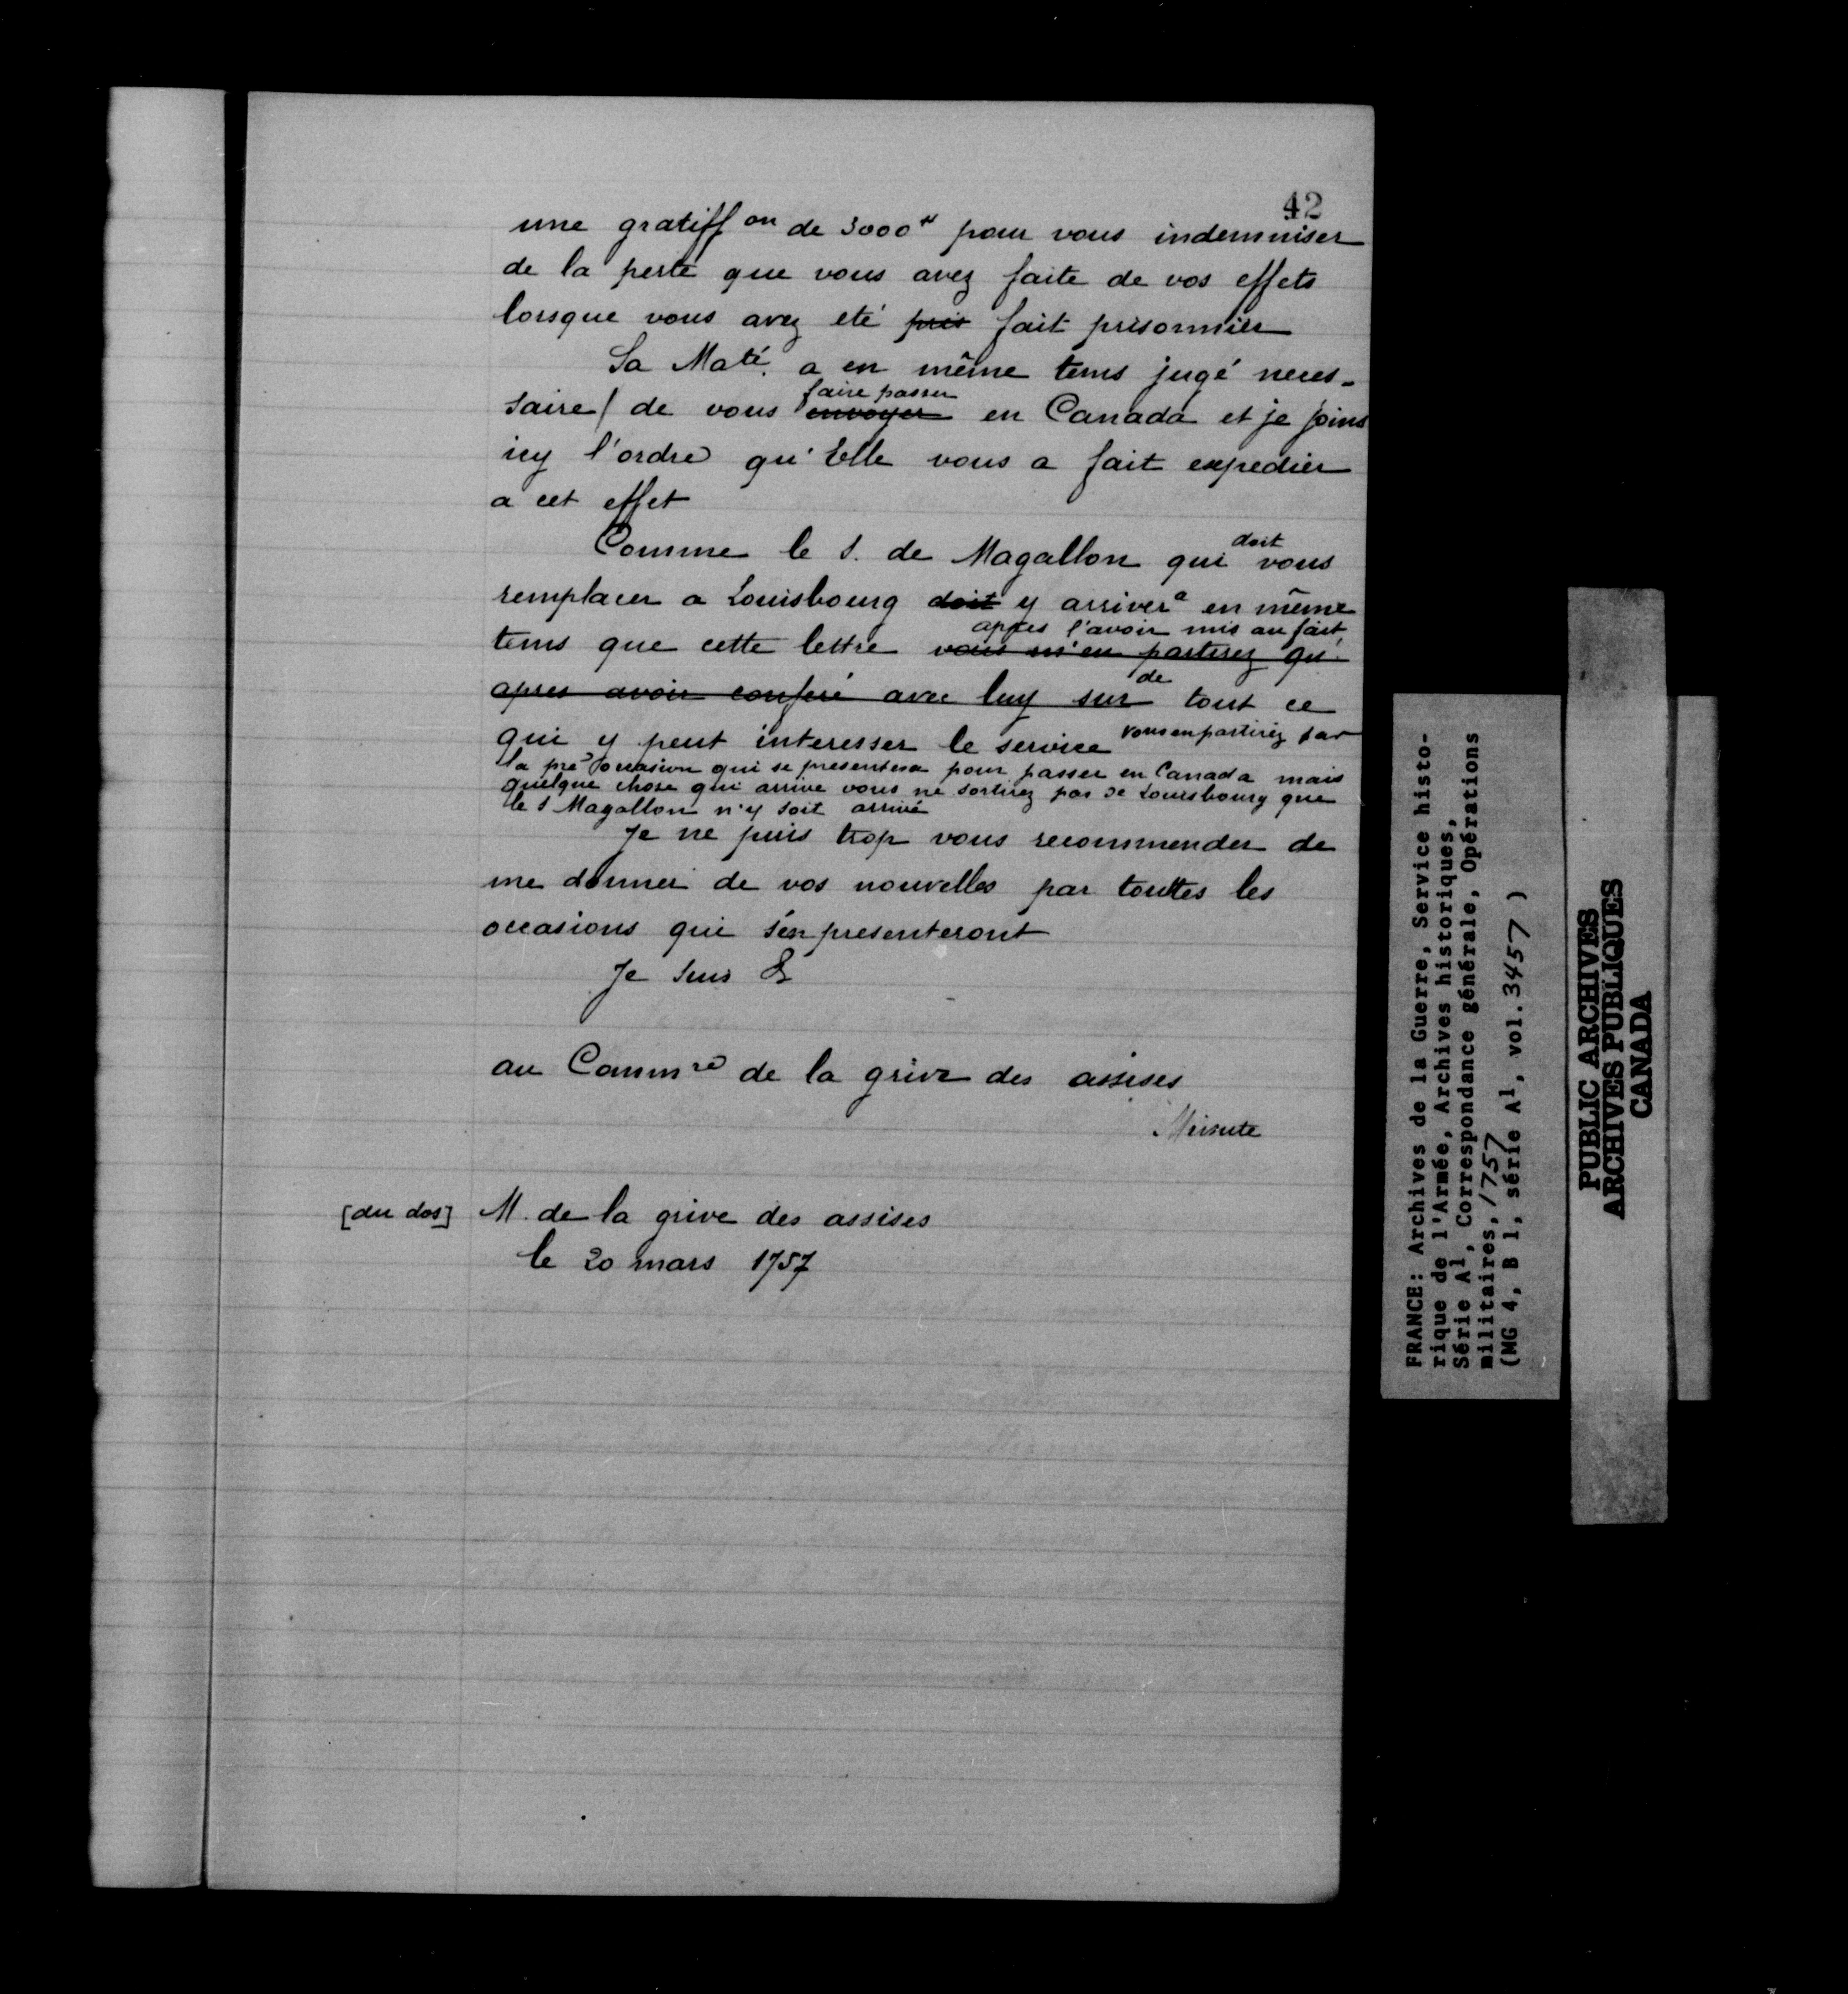 42
une gratiff on de 3000# pour vous indemniser
de la perte que vous avez faite de vos effets
lorsque vous avez eté pris fait prisonnier
Sa Maté. a en même tems jugé neces-
faire passer
saire/ de vous envoyer en Canada et je joins
icy l'ordre qu'Elle vous a fait expedier
a cet effet
doit
Comme le S. de Magallon qui vous
remplacer a Louisbourg doit y arrivera en même
apres l'avoir mis au fait
tems que cette lettre vous n'en partirez qu'
de
apres avoir conferé avec luy sur tout ce
qui y peut interesser le service vous en partirez par
la pre occasion qui se presentera pour passer en Canada mais
quelque chose qui arrive vous ne sortirez pas de Louisbourg que
le S Magallon n'y soit arrivé
Je ne puis trop vous recommender de
me donner de vos nouvelles par touttes les
occasions qui s'en presenteront
Je suis &
au Commre de la grive des assises
Minute
[au dos] M. de la grive des assises
le 20 mars 1757
FRANCE: Archives de la Guerre, Service histo-
rique de l'Armée, Archives historiques,
Série A1, Correspondance générale, Opérations
militaires, 1757
(MG 4, B 1, série A1, vol. 3457 )
PUBLIC ARCHIVES
ARCHIVES PUBLIQUES
CANADA